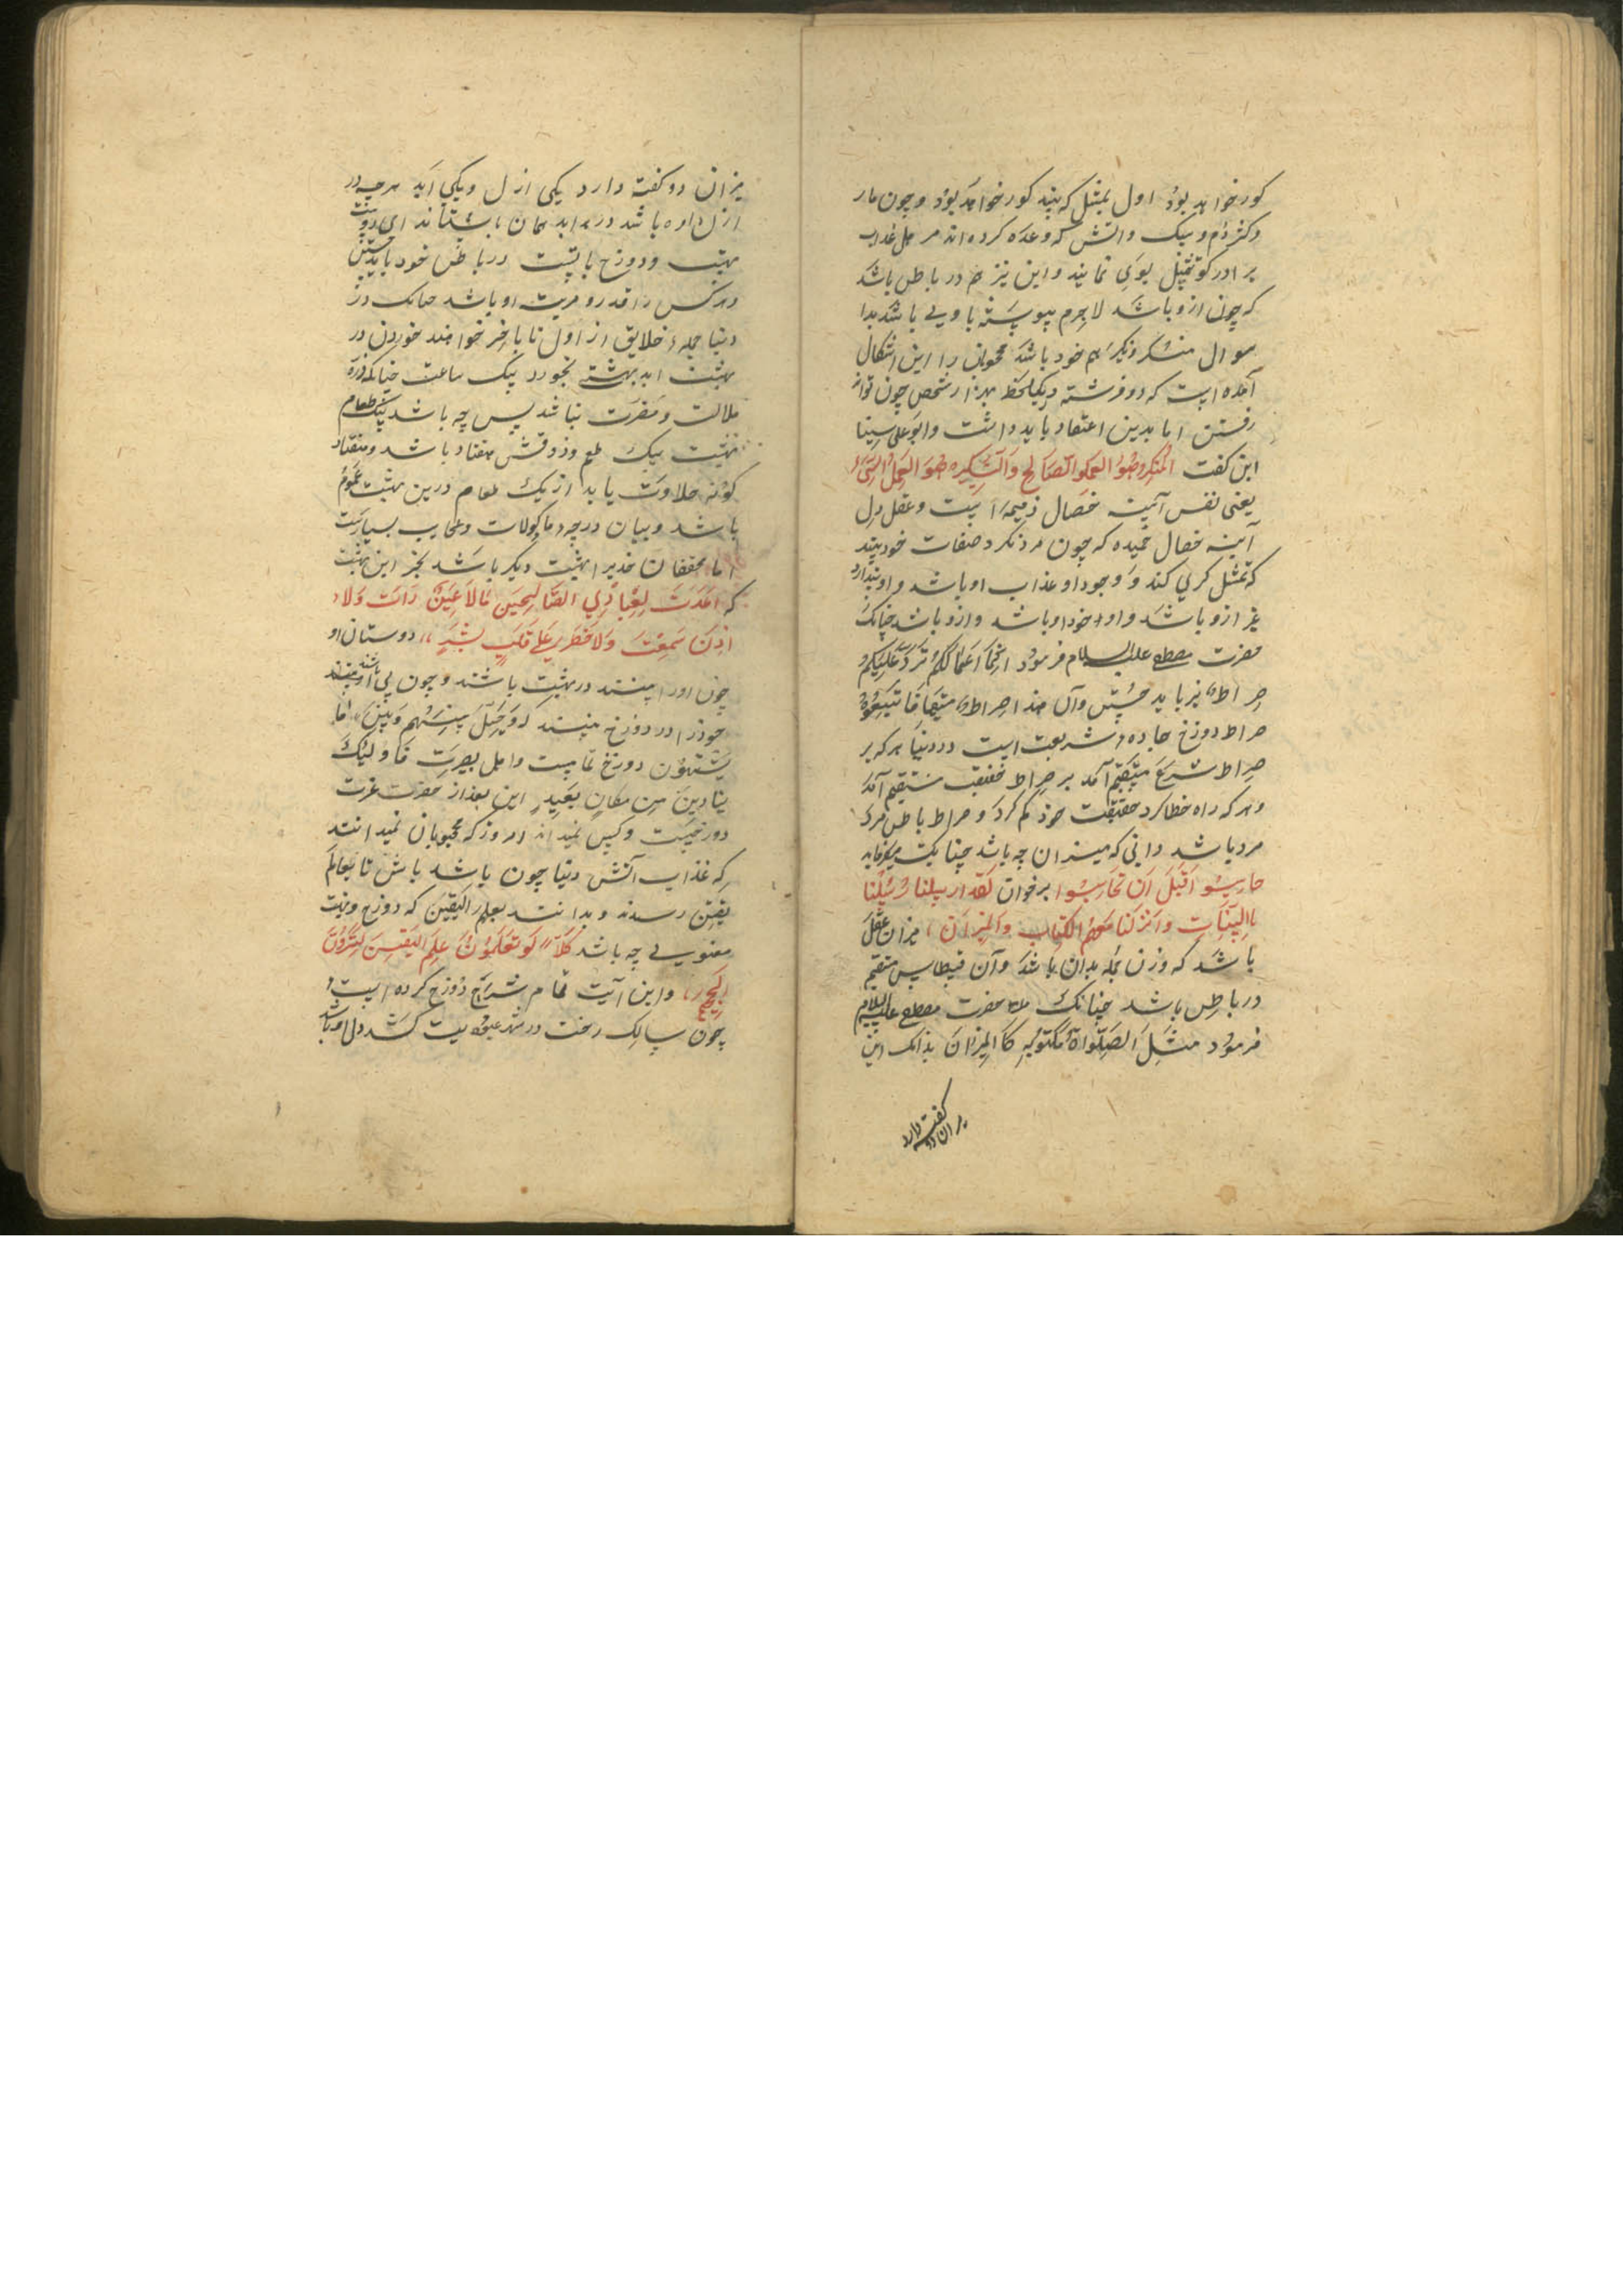 کور خواهد بود اول بمثل که بیند کور خواهد بود و چون مار
و کژدم و سک و اتش که وعده کرده اند مر اهل عذاب
بر ادر کو تمثیل بوی نمایند و این نیز هم در باطن باشد
که چون ازو باشد لاجرم پیوسته با وی باشد بدا
سوال منکر و نکیر هم خود باشد محجوبان را این اشکال
آمده است که دو فرشته در یکلحظه بهزار شخص چون تواند
رفتن اما بدین اعتقاد باید داشت و ابو علی سینا
این کفت المنکر هو العمل الصالح و النکیر هو العمل السیء
یعنی نفس آیینه خصال ذمیمه است و عقل و دل
آینه خصال حمیده که چون مرد نکرد صفات خود بیند
که تمثل کری کند و وجود او عذاب او باشد و او پندارد
غیر ازو باشد و او خود او باشد و ازو باشد چنانک
حضرت مصطفی علیه السلام فرمود انما اعمالکم ترد علیکم
صراط نیز باید جستن و آن هذا صراطی مستقیما فاتبعوه
صراط دوزخ جاده شریعت است در دنیا هر که بر
صراط شرع مستقیم آمد بر صراط حقیقت مستقیم آمد
و هر که راه خطا کرد حقیقت خود کم کرد و صراط باطن مرد
مرد باشد دانی که میزان چه باشد چنانک میفرماید
حاسبوا قبل ان تحاسبوا برخوان لقد ارسلنا رسلنا
باالبینات و انزلنا معهم الکتاب والمیزان میزان عقل
باشد که وزن همه بدان باشد و آن قسطاس مستقیم
در باطن باشد چنانک حضرت مصطفی علیه السلام
فرمود مثل الصلواة مکتوبه کاالمیزان بدانک این
میزان دو کفته دارد
میزان دو کفته دارد یکی ازل و یکی ابد هرچه در
ازل داده باشد در ابد همان باستاند ای دوست
بهشت و دوزخ با تست در باطن خود باید جستن
و هر کس را قدر و مرتبت او باشد چنانک در
دنیا جمله خلایق از اول تا باخر خواهند خوردن در
بهشت ابد بهشتی بخورد بیک ساعت چنانکه ذره
ملالت و مضرت نباشد پس چه باشد بیک طعام
بهشت بیک طعم و ذوقش هفتاد باشد و هفتاد
کونه حلاوت یابد از یک طعام درین بهشت عموم
باشد و بیان درجه ماکولات و عجایب بسیارست
اما محققان خدیرا بهشت دیکر باشد بجز این بهشت
که اعددت لعبادی الصالحین مالا عین رات ولا
اذن سمعت ولا خطر علی قلب بشر دوستان او
چون اورا بینند در بهشت باشند و چون بی او باشند
خود را در دوزخ بینند که و حیل بینهم و بین ما
یشتهون دوزخ تمامست و اهل بصیرت فاولیک
ینادین من مکان بعید این بعد از حضرت عزت
دوزخیست و کس نمیداند امروز که محجوبان نمیدانند
که عذاب آتش دنیا چون باشد باش تا بعالم
یقین رسند و بدانند بعلم الیقین که دوزخ و بهشت
معنوی چه باشد کلا لو تعلمون علم الیقین لترون
الجحیم و این آیت تمام شرح دوزخ کرده است
چون سالک رخت در شهر عبودیت کشد دل او باشد